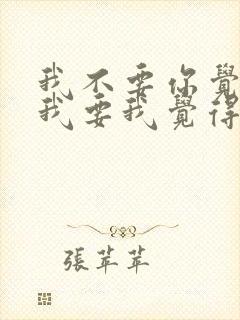 我不要你覺
我要我覺得
張苹苹